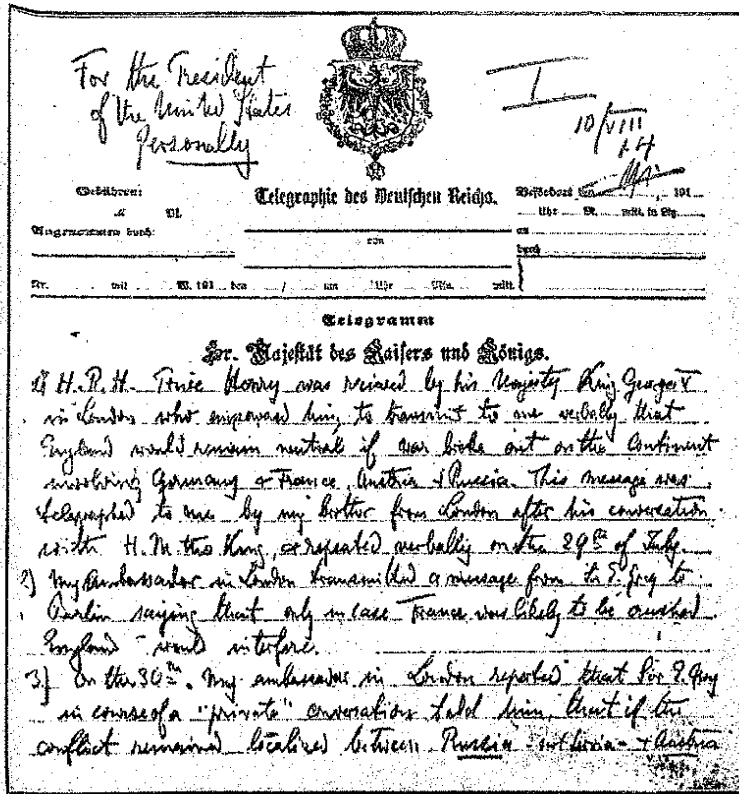 For the President
of the United States
Personally
I.
10/VIII
14
Gebühren:
Telegraphie des Deutschen Reichs.
, 191
M. Pf.
Uhr M. mitt. in Ltg.
Angenommen durch:
von
an
durch
Nr. mit W. 191 den / um Uhr Min. mitt.
Telegramm
Sr. Majestät des Kaisers und Königs.
1) H.R.H. Prince Henry was received by his Majesty King George V
in London who empowered him to transmit to me verbally that
England would remain neutral if war broke out on the Continent
involving Germany + France, Austria + Russia. This message was
telegraphed to me by my brother from London after his conversation
with H.M. the King, + repeated verbally on the 29th of July.
2) My Ambassador in London transmitted a message from Sir E. Grey to
Berlin saying that only in case France was likely to be crushed
England would interfere.
3) On the 30th. My ambassador in London reported that Sir E. Grey
in course of a "private" conversation told him, that if the
conflict remained localized between Russia - not Servia - + Austria